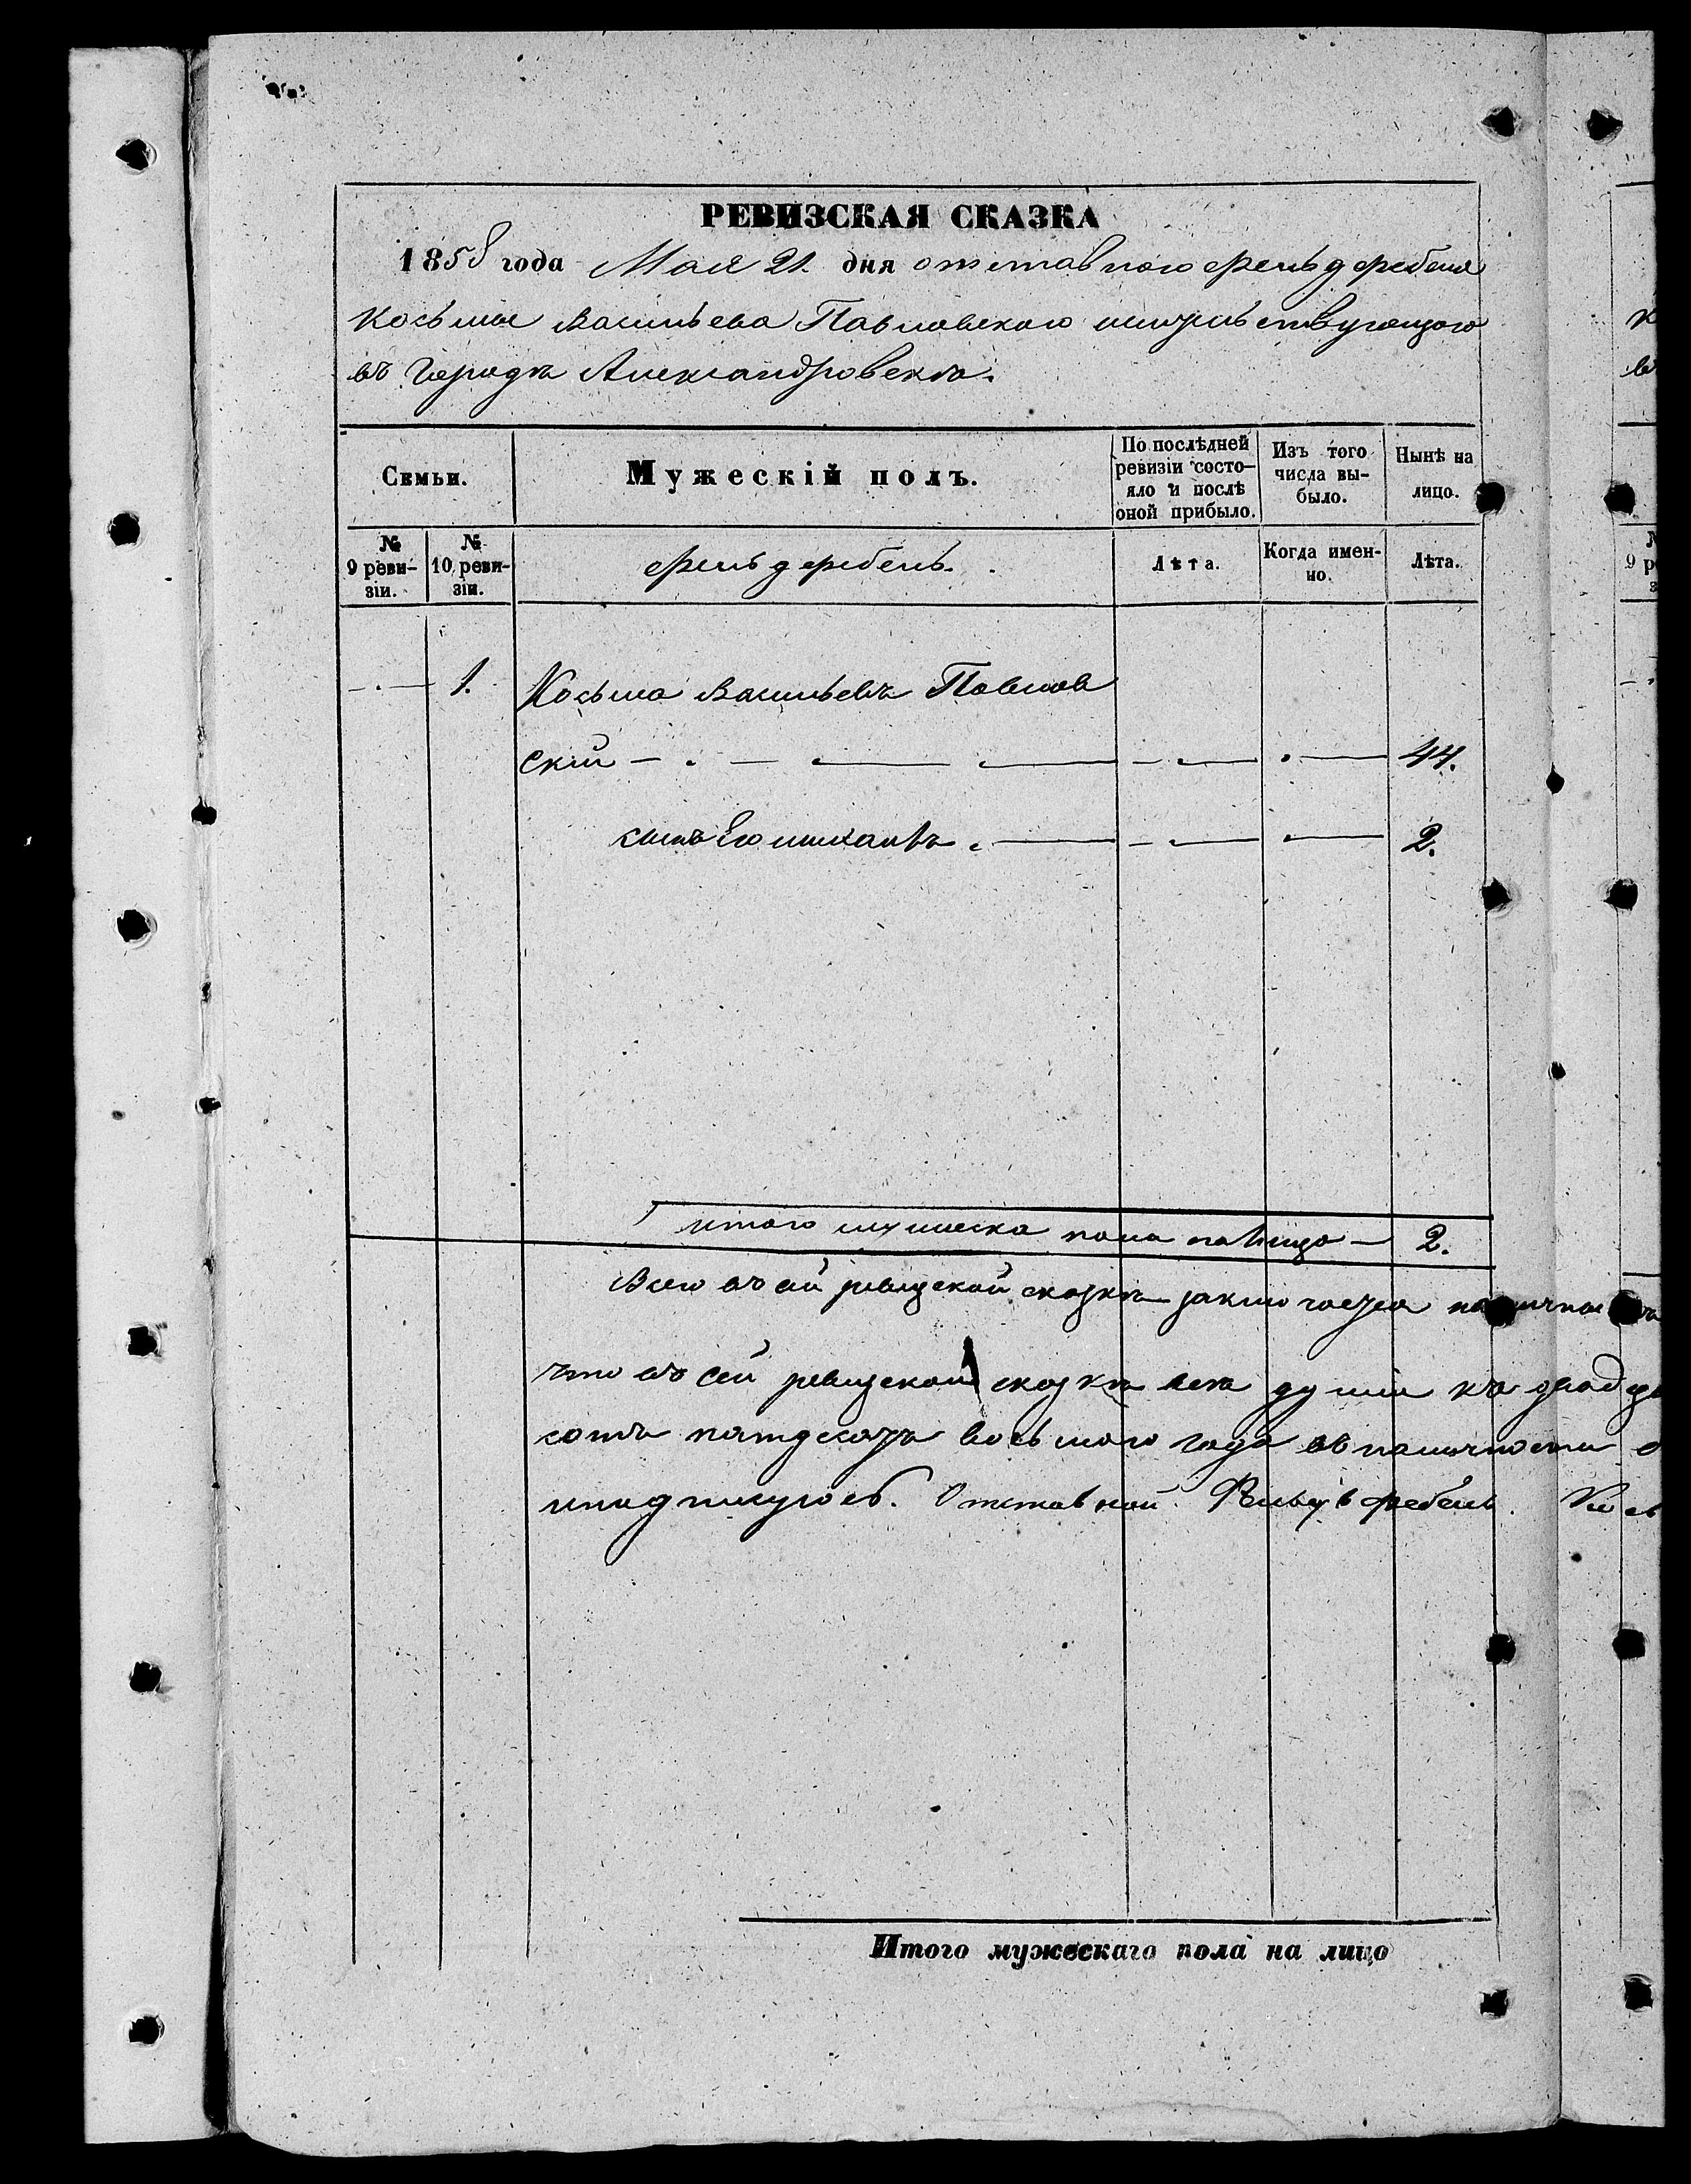 РЕВИЗСКАЯ СКАЗКА
1858 года Мая 21. дня отставного фельдфебеля
Козьмы Васильева Павловского жительствующаго
въ городѣ Александровскѣ.
Семьи.
Мужескій полъ.
По послѣдней ревизіи состо-яло и послѣ оной прибыло.
Изъ того числа вы-было.
Нынѣ на лицо.
№ 9 реви-зіи.
№ 10 реви-зіи.
фельдфебель.
Лѣта.
Когда имен-но.
Лѣта.
1. Козьма Васильевъ Павлов
ский 44.
сынъ Его Михаилъ 2.
итого мужеска пола на лицо 2.
Всего въ сей ревизской сказкѣ заключается
что въ сей ревизской сказкѣ всѣ души къ
сотъ пятдесятъ восьмого года въ наличности
и подпишуюсь. Отставной Фельдфебель.
Итого мужескаго пола на лицо